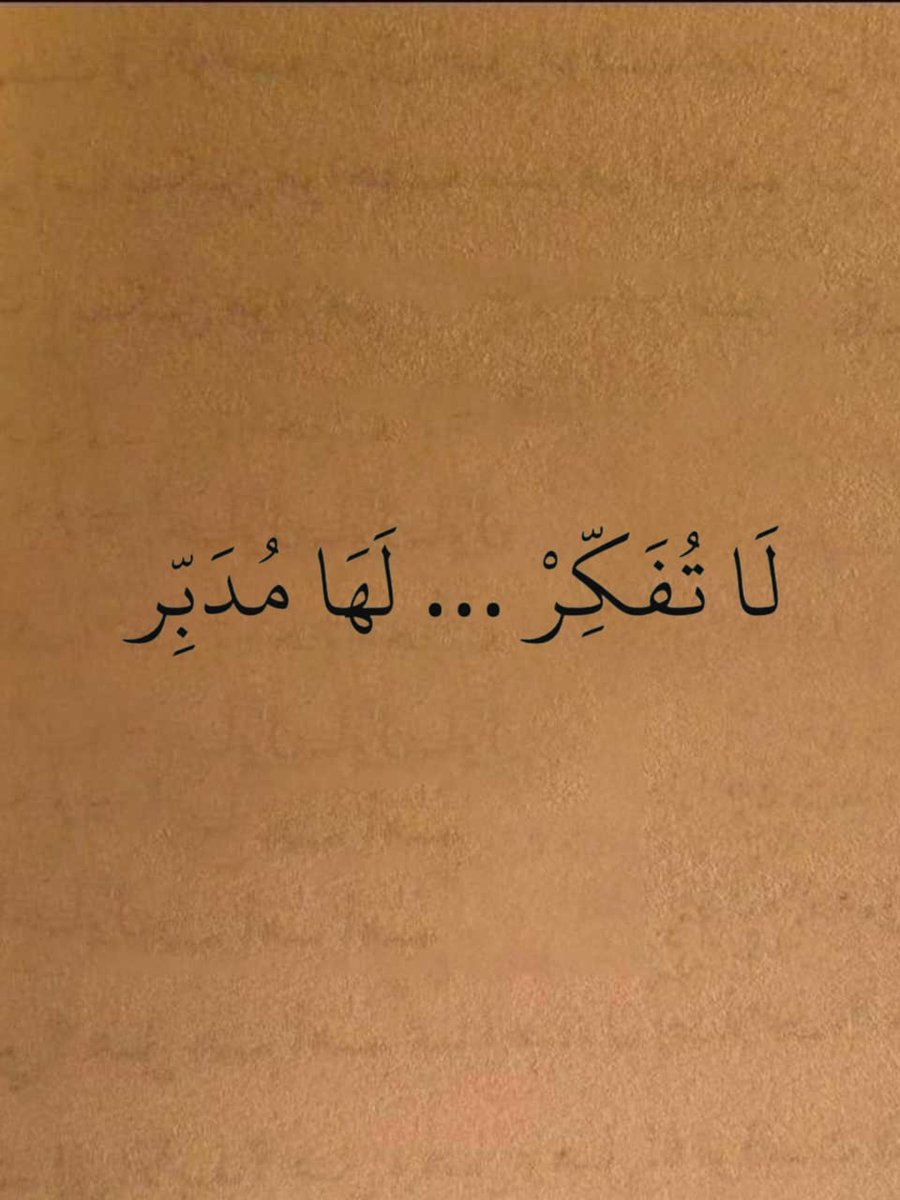 لَا تُفَكِّرْ ... لَهَا مُدَبِّر